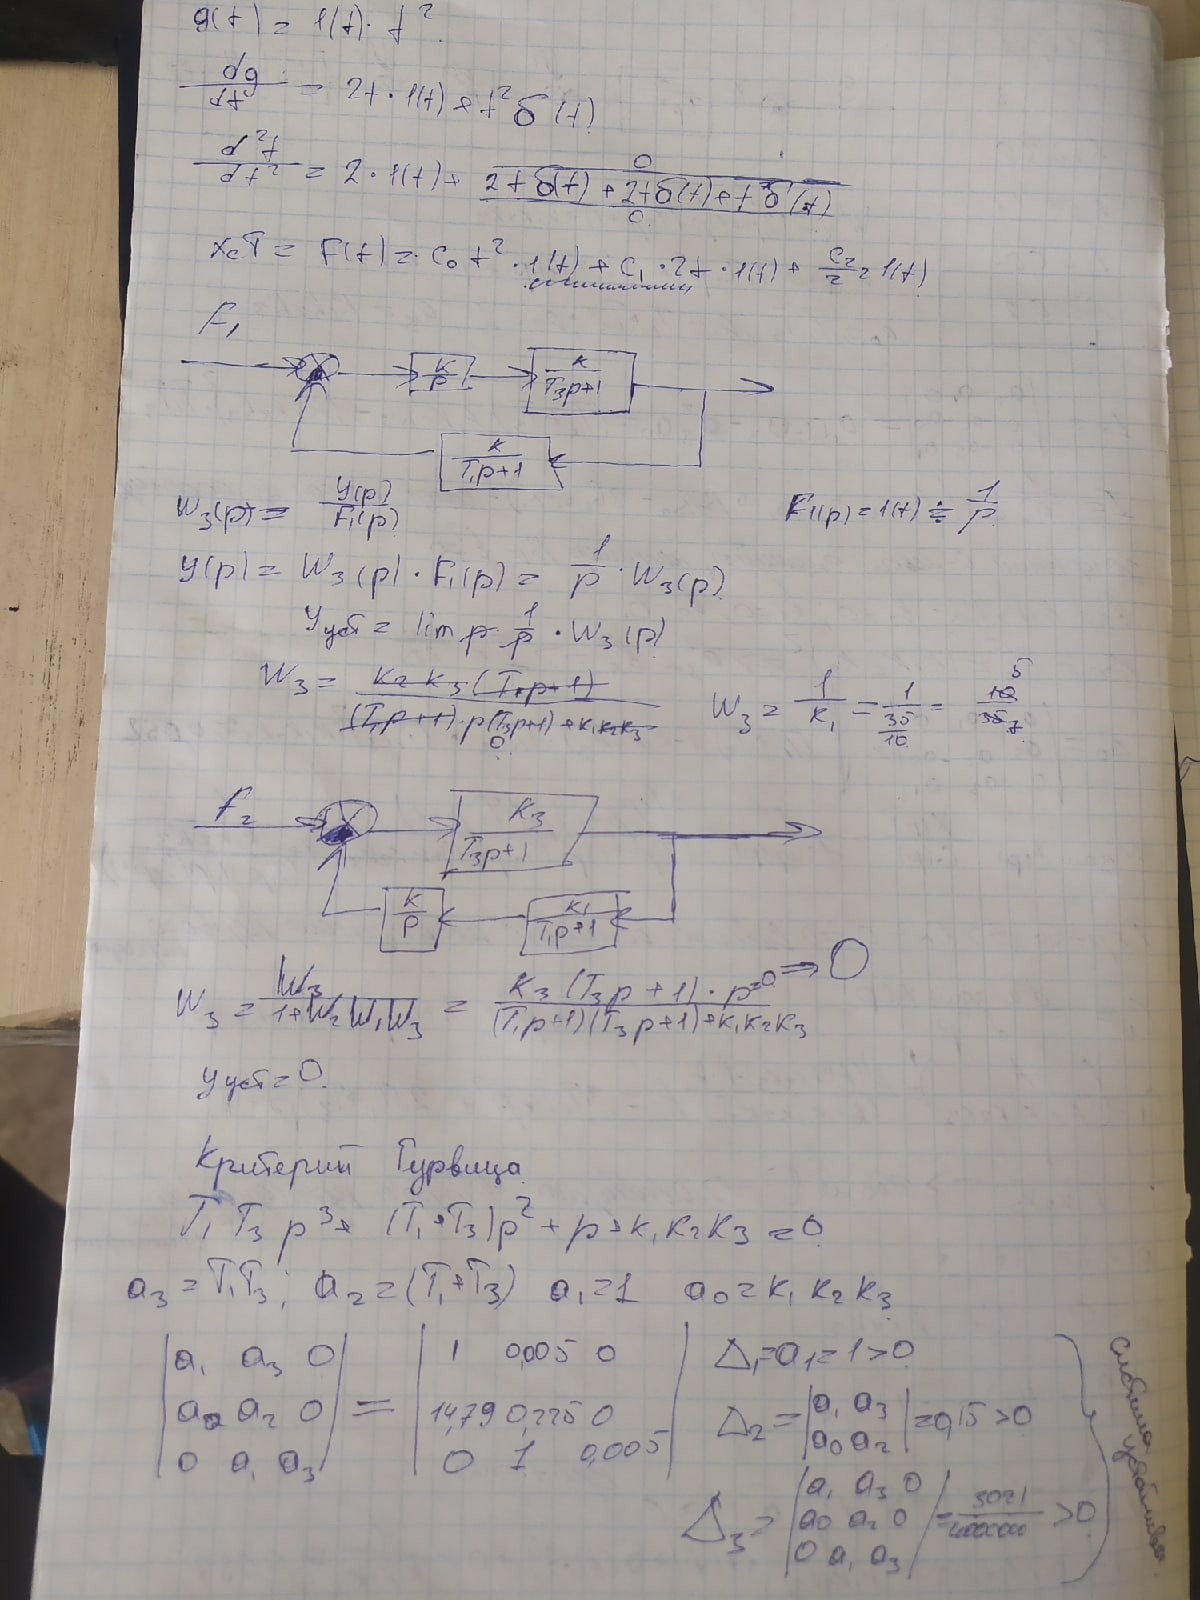 g(t) = 1(t) · t².
dg/dt = 2t · 1(t) + t² δ(t)
d²t/dt² = 2 · 1(t) + 2tδ(t) + 2tδ(t) + t²δ'(t)
0
0
xст = F(t) = c₀ t² · 1(t) + c₁ · 2t · 1(t) + c₂/2 2 1(t)
F₁
k/p
k/(T₃p+1)
k/(T₁p+1)
W₃(p) = y(p)/F₁(p)
F₁(p) = 1(t) ≑ 1/p
y(p) = W₃(p) · F₁(p) = 1/p · W₃(p)
yуст = lim p 1/p · W₃(p)
W₃ = k₂ k₃ (T₁p+1) / ((T₁p+1) · p(T₃p+1) + k₁k₂k₃)
0
W₃ = 1/k₁ = 1/(35/10) = 10/35
5
7
f₂
k₃/(T₃p+1)
k/p
k₁/(T₁p+1)
W₃ = W₃/(1+W₂W₁W₃) = k₃ (T₃p + 1) · p⁼⁰ / ((T₁p+1)(T₃p+1)+k₁k₂k₃) ⇒ 0
yуст = 0.
Критерий Гурвица
T₁ T₃ p³ + (T₁+T₃)p² + p + k₁k₂k₃ = 0
a₃ = T₁T₃; a₂ = (T₁+T₃) a₁ = 1 a₀ = k₁ k₂ k₃
|a₁ a₃ 0| = |1 0,005 0| Δ₁ = a₁ = 1 > 0
|a₀ a₂ 0| |14,79 0,225 0| Δ₂ = |a₁ a₃| = 0,15 > 0
|0 a₁ a₃| |0 1 0,005| |a₀ a₂|
Δ₃ = |a₁ a₃ 0| = 3021/4000000 > 0
|a₀ a₂ 0|
|0 a₁ a₃|
система устойчива